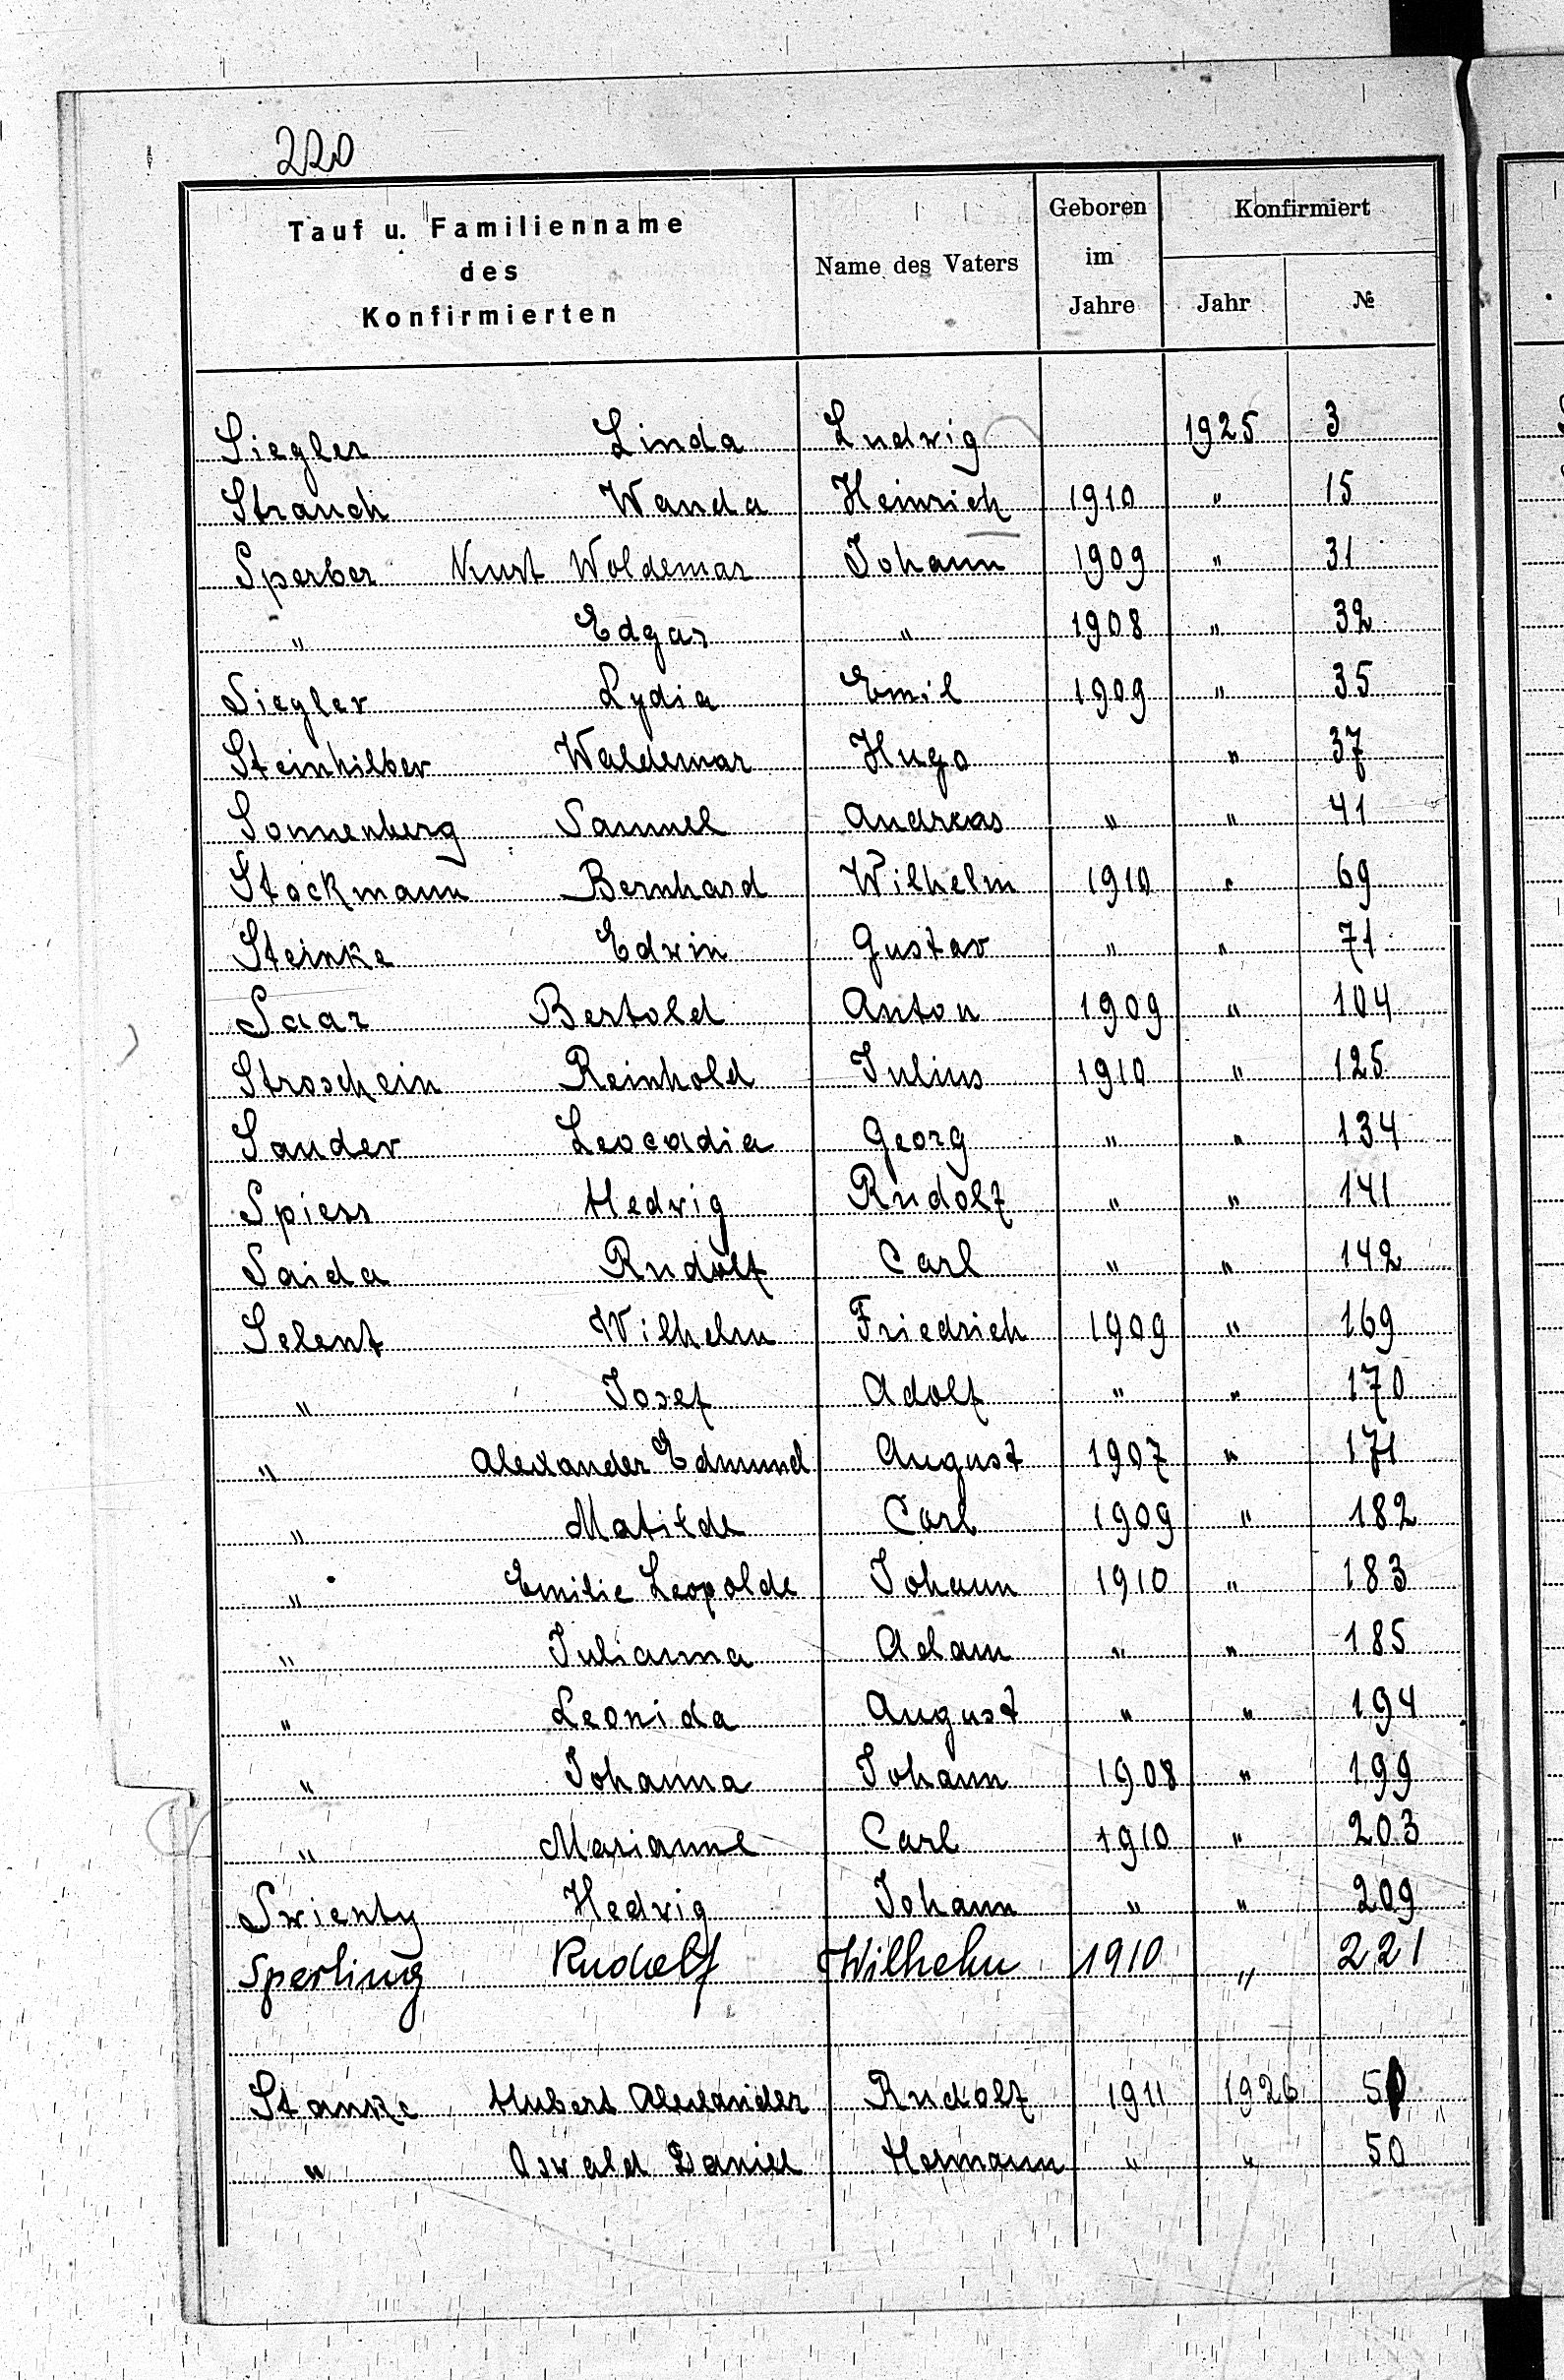 220
Tauf u. Familienname des Konfirmierten Name des Vaters Geboren im Jahre Konfirmiert Jahr №
Siegler Linda Ludwig 1925 3
Strauch Wanda Heinrich 1910 " 15
Sperber Kurt Woldemar Johann 1909 " 31
" Edgar " 1908 " 32
Siegler Lydia Emil 1909 " 35
Steinhilber Waldemar Hugo " 37
Sonnenberg Samuel Andreas " " 41
Stockmann Bernhard Wilhelm 1910 " 69
Steinke Edwin Gustav " " 71
Saar Bertold Anton 1909 " 104
Stroschein Reinhold Julius 1910 " 125
Sander Leocadia Georg " " 134
Spiess Hedwig Rudolf " " 141
Saida Rudolf Carl " " 142
Selent Wilhelm Friedrich 1909 " 169
" Josef Adolf " " 170
" Alexander Edmund August 1907 " 171
" Matilde Carl 1909 " 182
" Emilie Leopolde Johann 1910 " 183
" Julianna Adam " " 185
" Leonida August " " 194
" Johanna Johann 1908 " 199
" Marianne Carl 1910 " 203
Swienty Hedwig Johann " " 209
Sperling Rudolf Wilhelm 1910 " 221
Stanke Hubert Alexander Rudolf 1911 1926
" Oswald Daniel Hermann " " 50